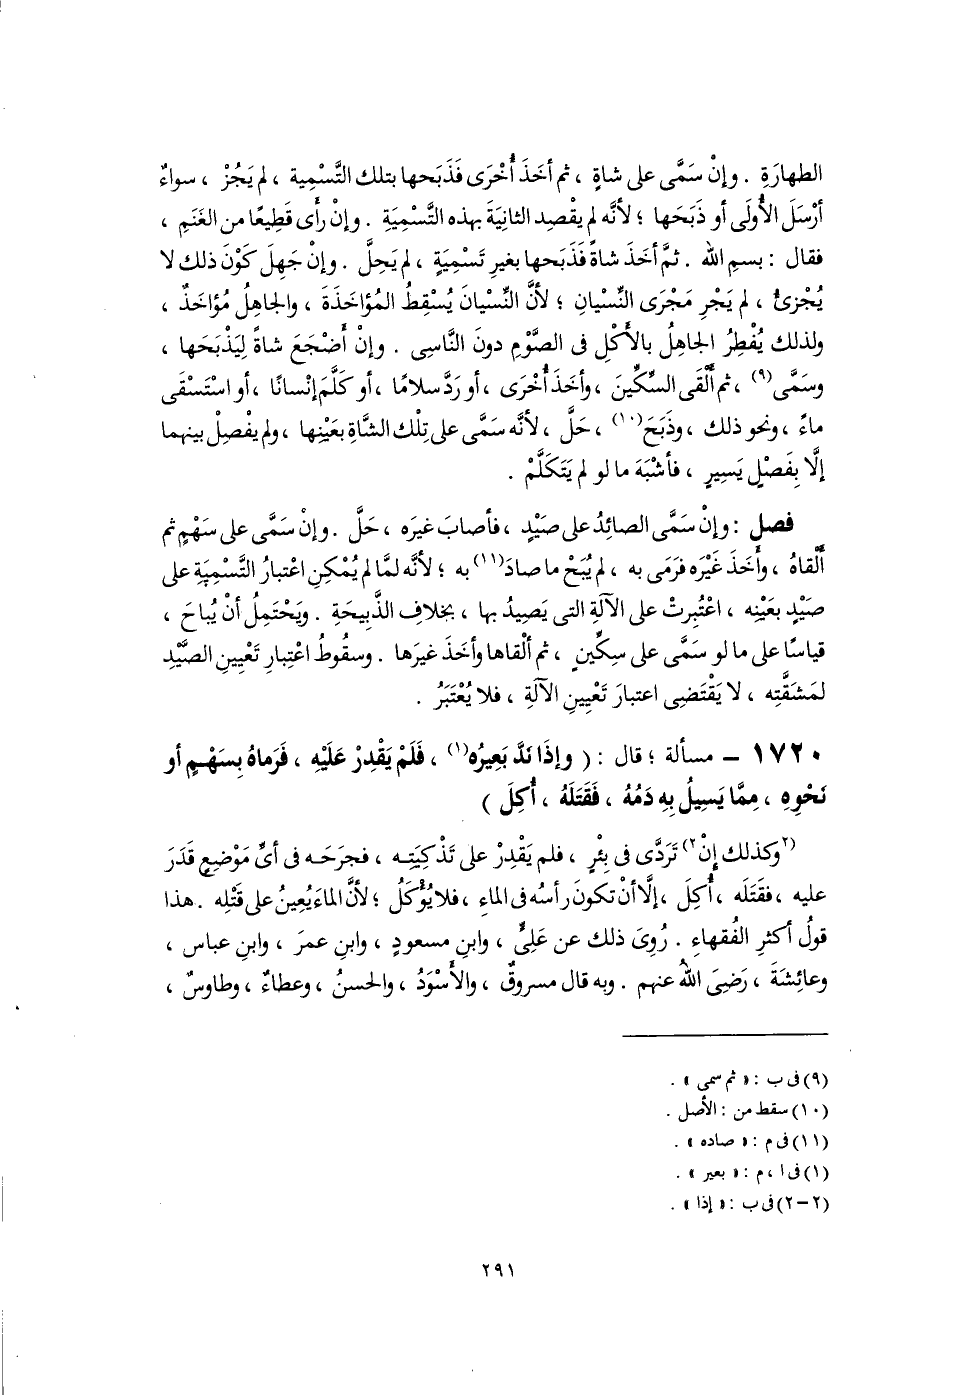 الطهارَةِ . وإنْ سَمَّى على شاةٍ ، ثم أخَذَ أُخْرَى فَذَبَحها بتلك التَّسْمِية ، لم يَجُزْ ، سواءٌ
أرْسَلَ الأُولَى أو ذَبَحَها ؛ لأنَّه لم يقْصِد الثانِيَةَ بهذه التَّسْمِيَةِ . وإنْ رأى قَطِيعًا من الغَنَمِ ،
فقال : بسمِ اللهِ . ثمَّ أخَذَ شاةً فَذَبَحها بغيرِ تَسْمِيَةٍ ، لم يَحِلَّ . وإنْ جَهِلَ كَوْنَ ذلك لا
يُجْزِئُ ، لم يَجْرِ مَجْرَى النِّسْيانِ ؛ لأنَّ النِّسْيانَ يُسْقِطُ المُؤاخَذَةَ ، والجاهِلُ مُؤاخَذٌ ،
ولذلك يُفْطِرُ الجاهِلُ بالأَكْلِ فى الصَّوْمِ دونَ النَّاسِى . وإنْ أَضْجَعَ شاةً لِيَذْبَحَها ،
وسَمَّى(٩) ، ثم أَلْقَى السِّكِّينَ ، وأخَذَ أُخْرَى ، أو رَدَّ سلامًا ، أو كَلَّمَ إنْسانًا ، أو اسْتَسْقَى
ماءً ، ونحو ذلك ، وذَبَحَ(١٠) ، حَلَّ ، لأنَّه سَمَّى على تِلْك الشَّاةِ بعَيْنِها ، ولم يفْصِلْ بينهما
إلَّا بِفَصْلٍ يَسِيرٍ ، فأشْبَهَ ما لو لم يَتَكَلَّمْ .
فصل : وإنْ سَمَّى الصائِدُ على صَيْدٍ ، فأصابَ غيرَه ، حَلَّ . وإنْ سَمَّى على سَهْمٍ ثم
أَلْقاهُ ، وأَخَذَ غَيْرَه فرَمَى به ، لم يُبَحْ ما صادَ(١١) به ؛ لأنَّه لمَّا لم يُمْكِنِ اعْتبارُ التَّسْمِيَةِ على
صَيْدٍ بعَيْنِه ، اعْتُبِرتْ على الآلَةِ التى يَصِيدُ بها ، بخلافِ الذَّبِيحَةِ . ويَحْتَمِلُ أنْ يُباحَ ،
قياسًا على ما لو سَمَّى على سِكِّينٍ ، ثم ألْقاها وأخَذَ غيرَها . وسقُوطُ اعْتِبارِ تَعْيِينِ الصَّيْدِ
لمَشَقَّتِه ، لا يَقْتَضِى اعتبارَ تَعْيِينِ الآلَةِ ، فلا يُعْتَبَرُ .
١٧٢٠ – مسألة ؛ قال : ( وإذَا نَدَّ بَعِيرُه(١) ، فَلَمْ يَقْدِرْ عَلَيْهِ ، فَرَماهُ بِسَهْمٍ أو
نَحْوِهِ ، مِمَّا يَسِيلُ بِهِ دَمُهُ ، فَقَتَلَهُ ، أُكِلَ )
(٢وكذلك إنْ٢) تَرَدَّى فى بِئْرٍ ، فلم يَقْدِرْ على تَذْكِيَتِه ، فجرَحَه فى أىِّ مَوْضِعٍ قَدَرَ
عليه ، فقَتَلَه ، أُكِلَ ، إلَّا أنْ تكونَ رأسُه فى الماءِ ، فلا يُؤْكَلُ ؛ لأنَّ الماءَ يُعِينُ على قَتْلِه . هذا
قولُ أكثرِ الفُقهاءِ . رُوِىَ ذلك عن عَلِىٍّ ، وابنِ مسعودٍ ، وابنِ عمرَ ، وابنِ عباس ،
وعائِشةَ ، رَضِىَ اللهُ عنهم . وبه قال مسروقٌ ، والأَسْوَدُ ، والحسنُ ، وعطاءٌ ، وطاوسٌ ،
(٩) فى ب : « ثم سمى » .
(١٠) سقط من : الأصل .
(١١) فى م : « صاده » .
(١) فى ا ، م : « بعير » .
(٢-٢) فى ب : « إذا » .
٢٩١